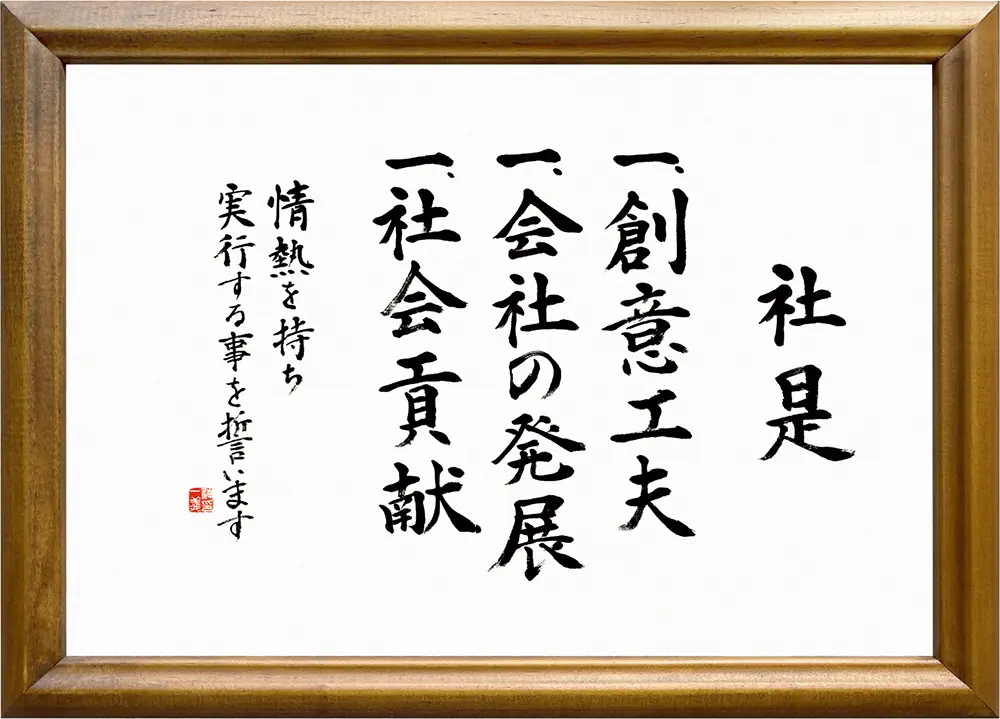 社是
一、創意工夫
一、会社の発展
一、社会貢献
情熱を持ち
実行する事を誓います